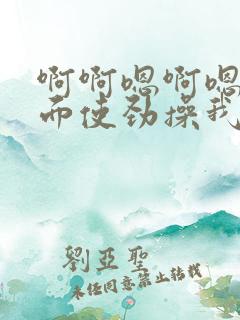 啊啊嗯啊嗯
而使劲操我
劉亞聖
未经同意禁止转载